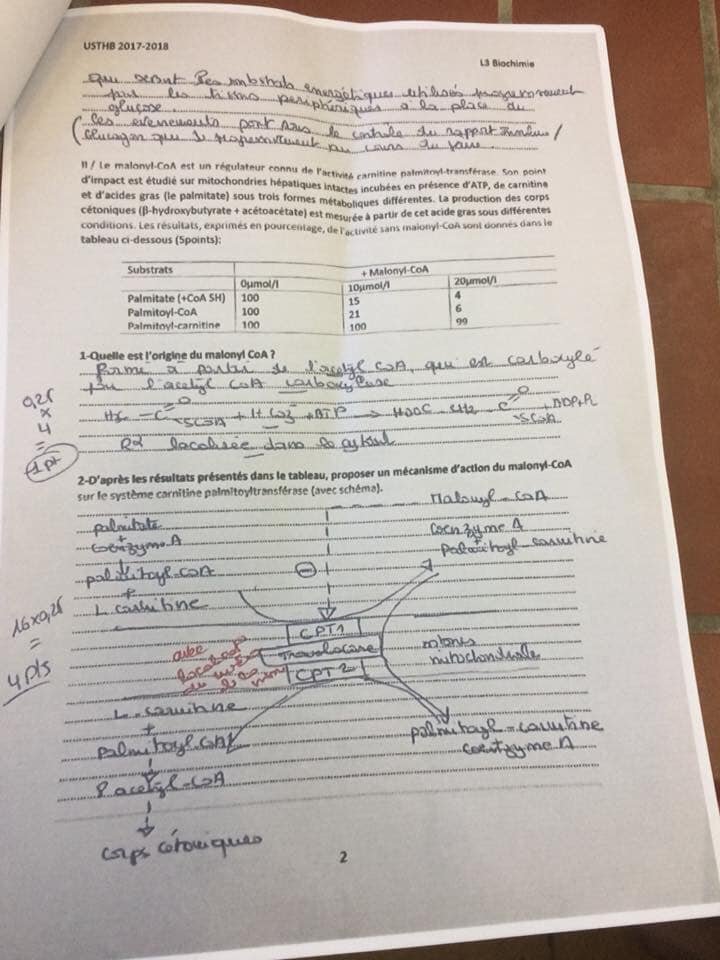 USTHB 2017-2018
L3 Biochimie
que seront les substrats énergétiques utilisés progressivement
par les tissus périphériques à la place du
glucose.
(Ces évènements sont sous le contrôle du rapport Insuline/
Glucagon qui au cours du jeûne.
II / Le malonyl-CoA est un régulateur connu de l'activité carnitine palmitoyl-transférase. Son point
d'impact est étudié sur mitochondries hépatiques intactes incubées en présence d'ATP, de carnitine
et d'acides gras (le palmitate) sous trois formes métaboliques différentes. La production des corps
cétoniques (β-hydroxybutyrate + acétoacétate) est mesurée à partir de cet acide gras sous différentes
conditions. Les résultats, exprimés en pourcentage, de l'activité sans malonyl-CoA sont donnés dans le
tableau ci-dessous (5points):
Substrats + Malonyl-CoA
0µmol/l 10µmol/l 20µmol/l
Palmitate (+CoA SH) 100 15 4
Palmitoyl-CoA 100 21 6
Palmitoyl-carnitine 100 100 99
1-Quelle est l'origine du malonyl CoA ?
formé à partir de l'acetyl CoA, qui est carboxylé
par l'acetyl CoA carboxylase
H3C - C=O SCOA + HCO3- + ATP → HOOC - CH2 - C=O SCOA + ADP+Pi
localisée dans le cytosol
0,25
x
4
=
1 pt
2-D'après les résultats présentés dans le tableau, proposer un mécanisme d'action du malonyl-CoA
sur le système carnitine palmitoyltransférase (avec schéma).
Malonyl-CoA
palmitate
+
Coenzyme A
Coenzyme A
+
Palmitoyl-carnitine
palmitoyl-CoA
+
L carnitine
⊖
CPT1
Translocase
CPT2
avec
matrice
mitochondriale
16x0,25
=
4 pts
L-carnitine
+
palmitoyl CoA
palmitoyl-carnitine
coenzyme A
8 acetyl-CoA
corps cétoniques
2